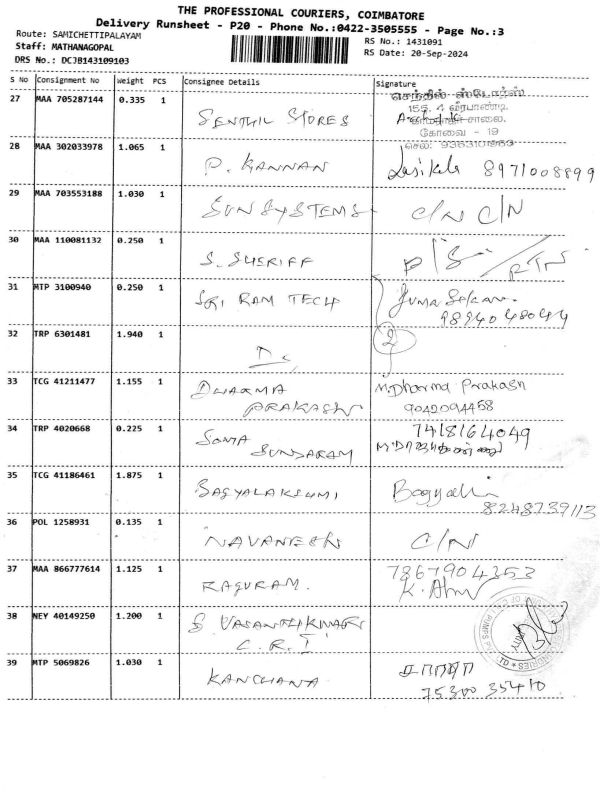 THE PROFESSIONAL COURIERS, COIMBATORE
Delivery Runsheet - P20 - Phone No.:0422-3505555 - Page No.:3
Route: SAMICHETTIPALAYAM
Staff: MATHANAGOPAL
DRS No.: DCJB143109103
RS No.: 1431091
RS Date: 20-Sep-2024
S No Consignment No Weight PCS Consignee Details Signature
27 MAA 705287144 0.335 1 SENTHIL STORES
செந்தில் ஸ்டோர்ஸ்
155, 4 வீரபாண்டி
சாலை,
கோவை - 19
28 MAA 302033978 1.065 1 P. KANNAN Lasikala 8971008899
29 MAA 703553188 1.030 1 SUN SYSTEMS C/N C/N
30 MAA 110081132 0.250 1 S. SHERIFF P/S / RTN
31 MTP 3100940 0.250 1 SRI RAM TECH
98940 48044
32 TRP 6301481 1.940 1 2
33 TCG 41211477 1.155 1 DHARMA PRAKASH M.Dharma Prakash
9042094458
34 TRP 4020668 0.225 1 SOMA SUNDARAM 7418164049
35 TCG 41186461 1.875 1 BAGYALAKSHMI
8248739113
36 POL 1258931 0.135 1 NAVANEESH C/N
37 MAA 866777614 1.125 1 RAGURAM. 7867904353
38 NEY 40149250 1.200 1 S. VASANTHKUMARI
C.R.I
39 MTP 5069826 1.030 1 KANCHANA
75300 35410